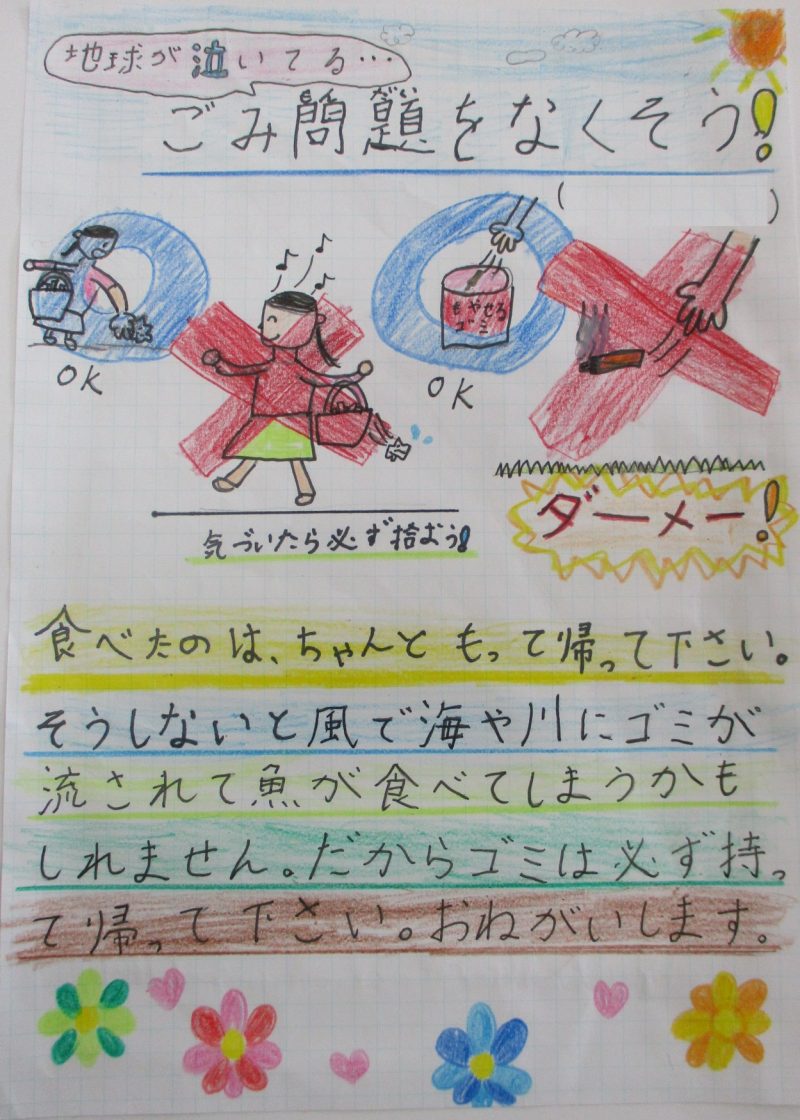 地球が泣いてる…
ごみ問題をなくそう!
(　　　)
OK
もやせる
ゴミ
OK
ダーメー!
気づいたら必ず拾おう!
食べたのは、ちゃんともって帰って下さい。
そうしないと風で海や川にゴミが
流されて魚が食べてしまうかも
しれません。だからゴミは必ず持っ
て帰って下さい。おねがいします。